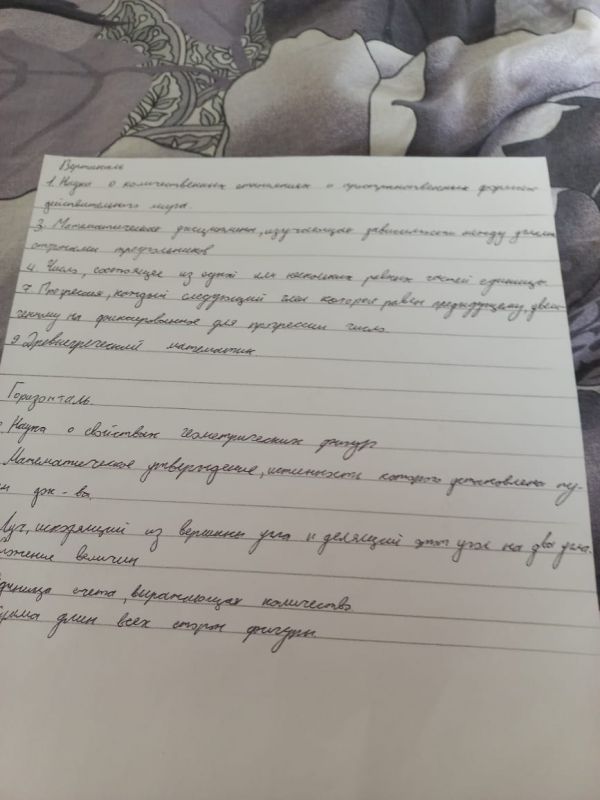 Вертикаль
1. Наука о количественных отношениях о пространственных формах
действительного мира.
3. Математическая дисциплина, изучающая зависимости между углами
сторонами треугольников
4. Число, состоящее из одной или нескольких равных частей единицы.
7. Прогрессия, каждый следующий член которой равен предыдущему,
на фиксированное для прогрессии число.
9. Древнегреческий математик
Горизонталь.
Наука о свойствах геометрических фигур
Математическое утверждение, истинность которого установлена пу-
м док-ва.
Луч, исходящий из вершины угла и делящий этот угол на два угла.
ложение величин
диница счета, выражающая количество
длин всех сторон фигуры